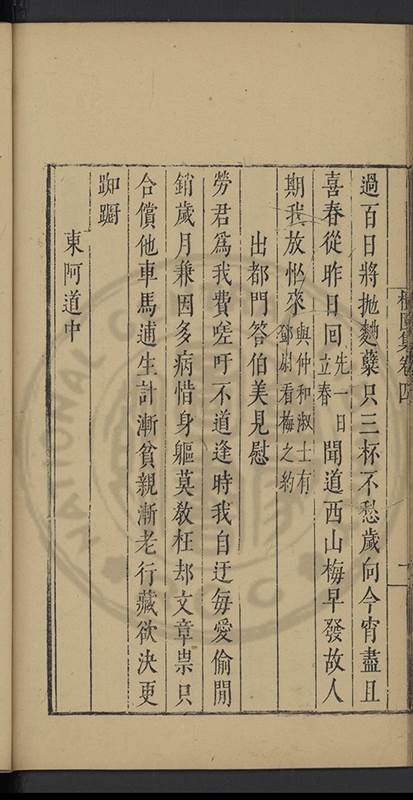 過百日將拋麯蘖只三杯不愁歲向今宵盡且
喜春從昨日回先一日立春聞道西山梅早發故人
期我放㠶來與仲和淑士有鄧尉看梅之約
出都門答伯美見慰
勞君爲我費嗟吁不道逢時我自迂每愛偷閒
銷歲月兼因多病惜身軀莫敎枉却文章祟只
合償他車馬逋生計漸貧親漸老行藏欲決更
踟躕
東阿道中
集卷四